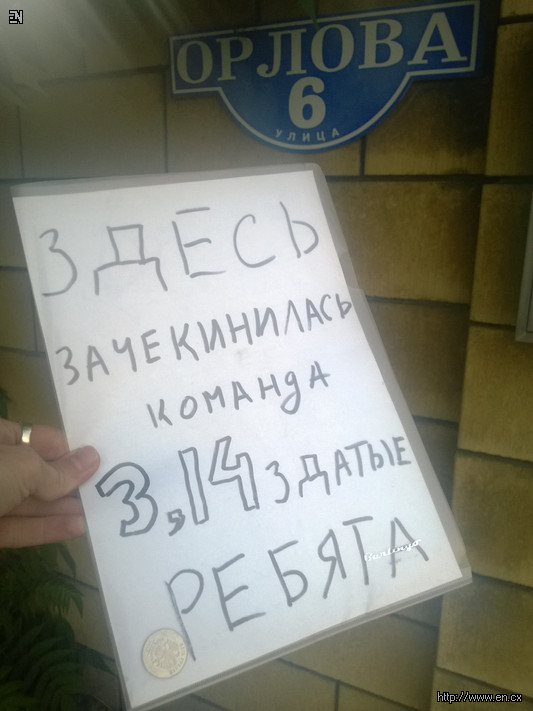 EN
ОРЛОВА
6
УЛИЦА
ЗДЕСЬ
ЗАЧЕКИНИЛАСЬ
КОМАНДА
3,14ЗДАТЫЕ
РЕБЯТА
http://www.en.cx